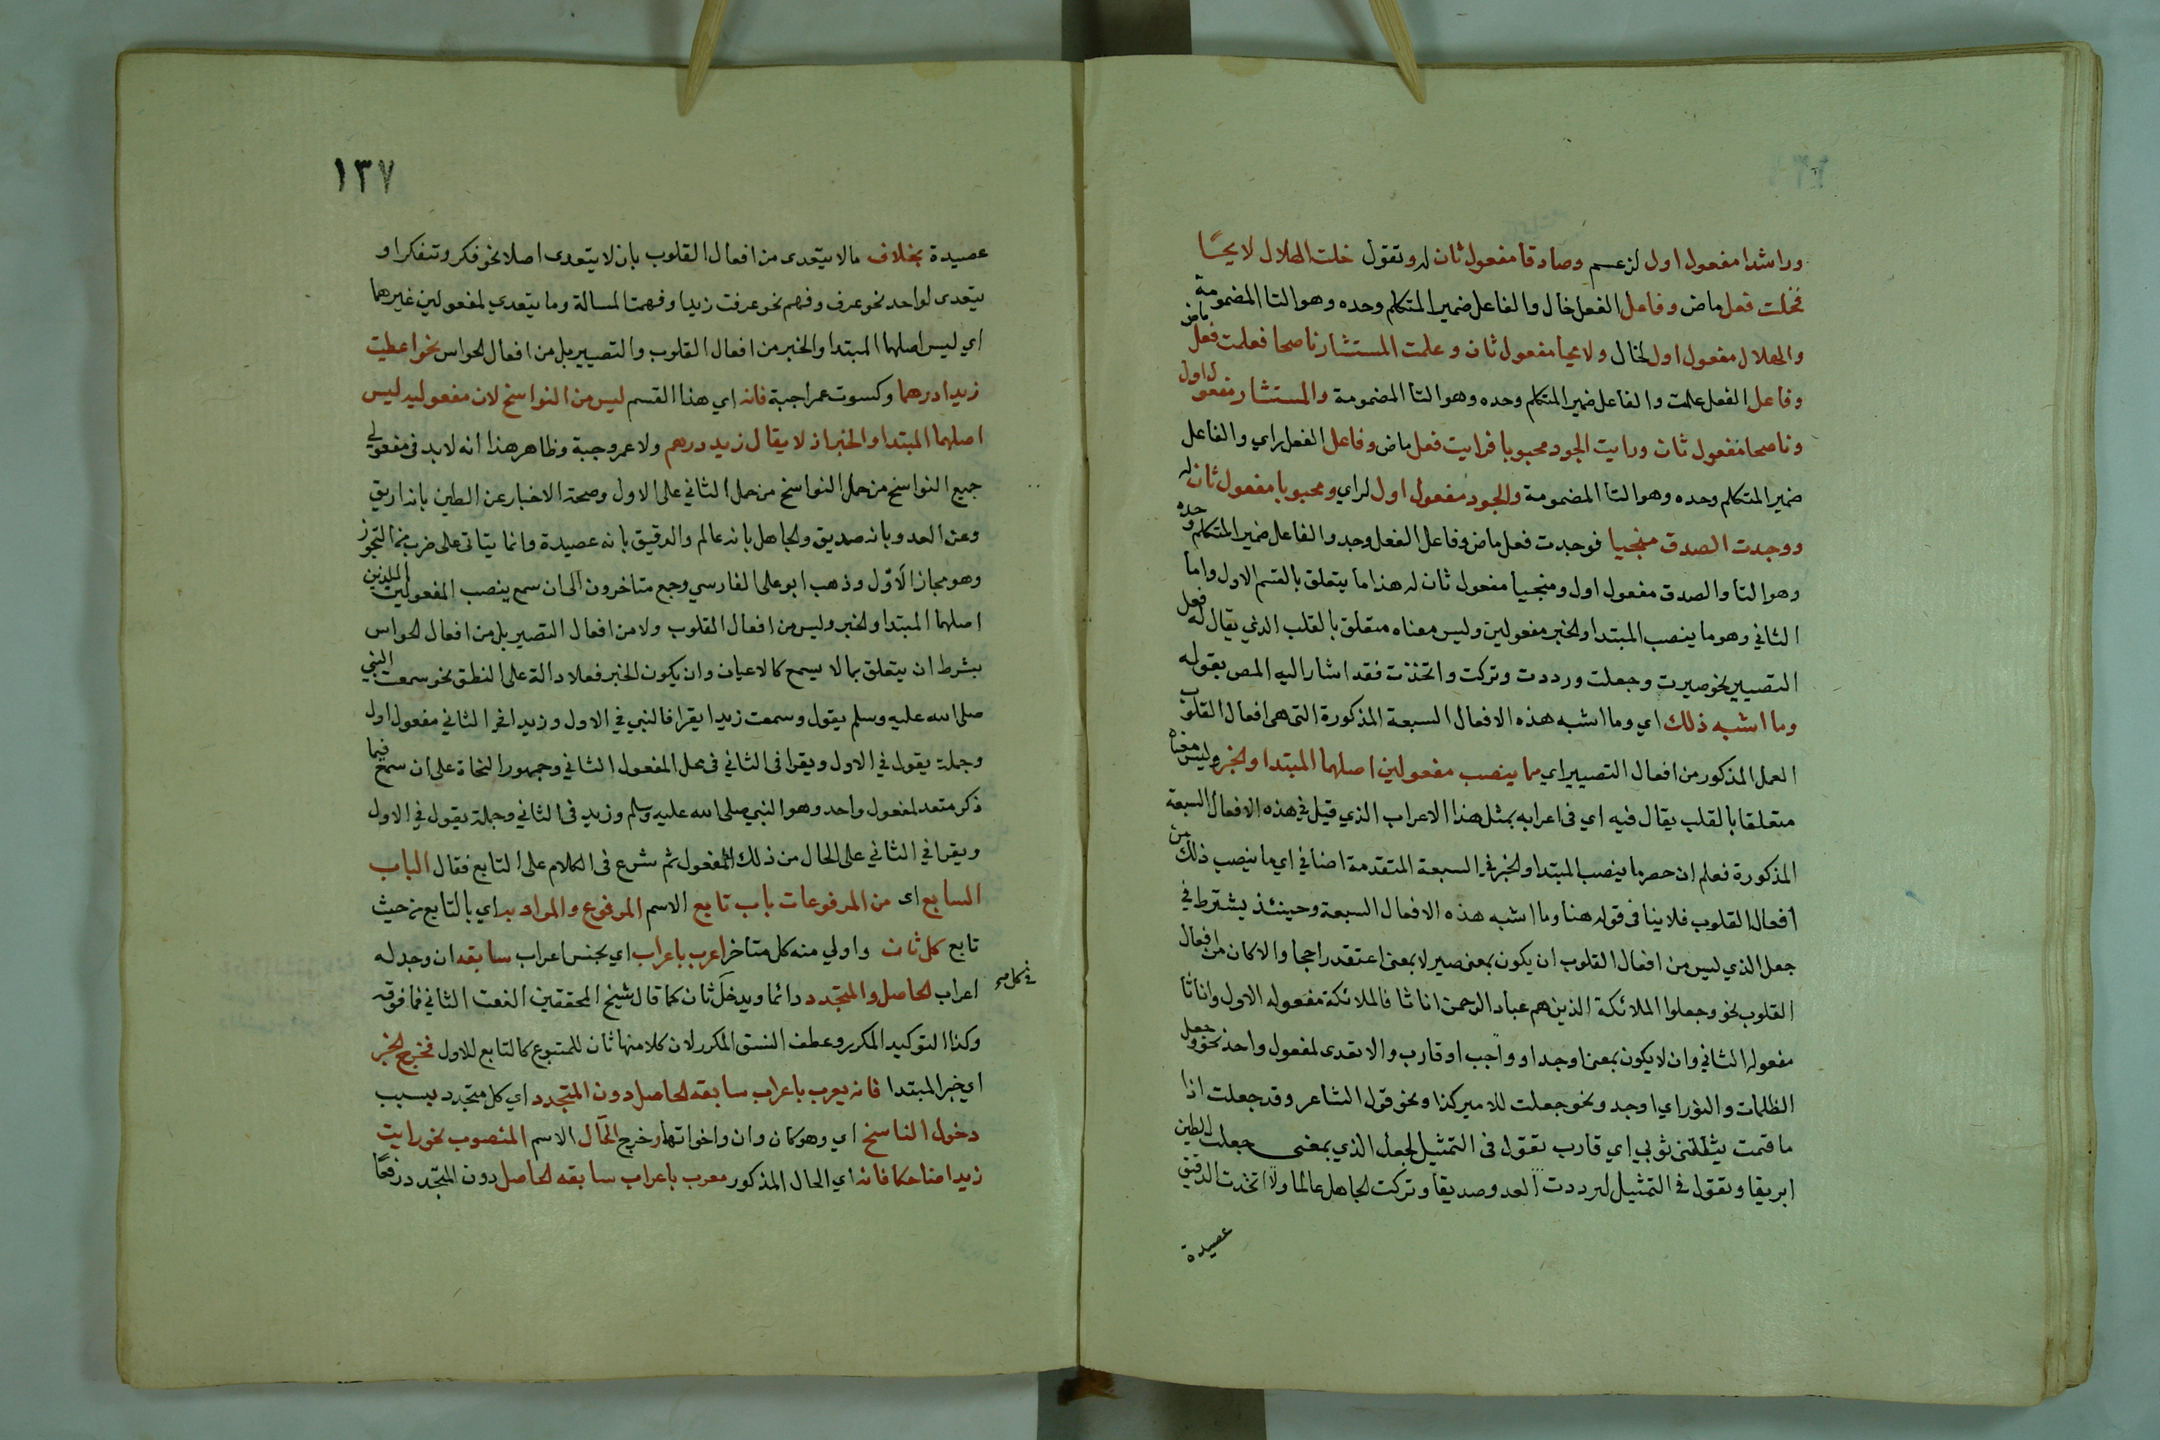 وراشدا مفعول اول لزعم وصادقا مفعول ثان له وتقول خلت الهلال لايحًا
فخلت فعل ماض وفاعل الفعل خال والفاعل ضمير المتكلم وحده وهو التا المضمومة
والهلال مفعول اول لخال ولايحا مفعول ثان وعلمت المستشار ناصحا فعلمت فعل ماض
وفاعل الفعل علمت والفاعل ضمير المتكلم وحده وهو التا المضمومة والمستشار مفعول اول
وناصحا مفعول ثان ورايت الجود محبوبا فرايت فعل ماض وفاعل الفعل راي والفاعل
ضمير المتكلم وحده وهو التا المضمومة والجود مفعول اول لراي ومحبوبا مفعول ثان له
ووجدت الصدق منجيا فوجدت فعل ماض وفاعل الفعل وجد والفاعل ضمير المتكلم وحده
وهو التا والصدق مفعول اول ومنجيا مفعول ثان له هذا ما يتعلق بالقسم الاول واما
الثاني وهو ما ينصب المبتدا والخبر مفعولين وليس معناه متعلق بالقلب الذي يقال له فعل
التصيير نحو صيرت وجعلت ورددت وتركت واتخذت فقد اشار اليه المص بقوله
وما اشبه ذلك اي وما اشبه هذه الافعال السبعة المذكورة التي هي افعال القلوب
العمل المذكور من افعال التصيير اي مما ينصب مفعولين اصلهما المبتدا والخبر وليس معناه
متعلقا بالقلب يقال فيه اي في اعرابه بمثل هذا الاعراب الذي قيل في هذه الافعال السبعة
المذكورة فعلم ان حصر ما ينصب المبتدا والخبر في السبعة المتقدمة اضافي اي ما ينصب ذلك من
افعال القلوب فلا ينافي قوله هنا وما اشبه هذه الافعال السبعة وحينئذ يشترط في
جعل الذي ليس من افعال القلوب ان يكون بمعنى صير لا بمعنى اعتقد راجحا والا كان من افعال
القلوب نحو وجعلوا الملائكة الذين هم عباد الرحمن اناثا فالملائكة مفعوله الاول واناثا
مفعوله الثاني وان لا يكون بمعنى اوجد او واجب او قارب والا تعدى لمفعول واحد نحو وجعل
الظلمات والنور اي اوجد ونحو جعلت للامير كذا ونحو قول الشاعر وقد جعلت اذا
ما قمت يثقلني ثوبي اي قارب تقول في التمثيل لجعل الذي بمعنى جعلت الطين
ابريقا وتقول في التمثيل لرددت العدو صديقا وتركت الجاهل عالما واتخذت الدقيق
عصيدة
١٣٧
عصيدة بخلاف ما لا يتعدى من افعال القلوب بان لا يتعدى اصلا نحو فكر وتفكر او
يتعدى لواحد نحو عرف وفهم نحو عرفت زيدا وفهمت المسالة وما يتعدي لمفعولين غيرهما
اي ليس اصلهما المبتدا والخبر من افعال القلوب والتصيير بل من افعال الحواس نحو اعطيت
زيدا درهما وكسوت عمرا جبة فانه اي هذا القسم ليس من النواسخ لان مفعوليه ليس
اصلهما المبتدا والخبر اذ لا يقال زيد درهم ولا عمرو جبة وظاهر هذا انه لا بد في مفعولي
جميع النواسخ من حمل النواسخ من حمل الثاني على الاول وصحة الاخبار عن الطين بانه ابريق
وعن العدو بانه صديق والجاهل بانه عالم والدقيق بانه عصيدة وانما يتاتى على ضرب من التجوز
وهو مجاز الاوّل وذهب ابو على الفارسي وجمع متاخرون الى ان سمع ينصب المفعولين اللذين
اصلهما المبتدا والخبر وليس من افعال القلوب ولا من افعال التصيير بل من افعال الحواس
بشرط ان يتعلق بما لا يسمع كالاعيان وان يكون الخبر فعلا دالة على النطق نحو سمعت النبي
صلى الله عليه وسلم يقول وسمعت زيدا يقرا فالنبي في الاول وزيدا في الثاني مفعول اول
وجملة يقول في الاول ويقرا في الثاني في محل المفعول الثاني وجمهور النحاة على ان سمع فيما
ذكر متعد لمفعول واحد وهو النبي صلى الله عليه وسلم وزيد في الثاني وجملة يقول في الاول
ويقرا في الثاني على الحال من ذلك المفعول ثم شرع في الكلام على التابع فقال الباب
السابع اى من المرفوعات باب تابع الاسم المرفوع والمراد به اي بالتابع من حيث
تابع كل ثان واولي منه كل متاخر اعرب باعراب اي بجنس اعراب سابقه ان وجد له
اعراب الحاصل والمتجدد دائما ويدخل ثان كما قال شيخ المحققين النعت الثاني فما فوقه
في كل صح
وكذا التوكيد المكرر وعطف النسق المكرر لان كلا منها ثان للمتبوع كالتابع للاول فخرج الخبر
اي خبر المبتدا فانه يعرب باعراب سابقه الحاصل دون المتجدد اي كل متجدد بسبب
دخول الناسخ اي وهو كان وان واخواتها وخرج الحال الاسم المنصوب نحو رايت
زيدا ضاحكا فانه اي الحال المذكور معرب باعراب سابقه الحاصل دون المتجدد رفعًا